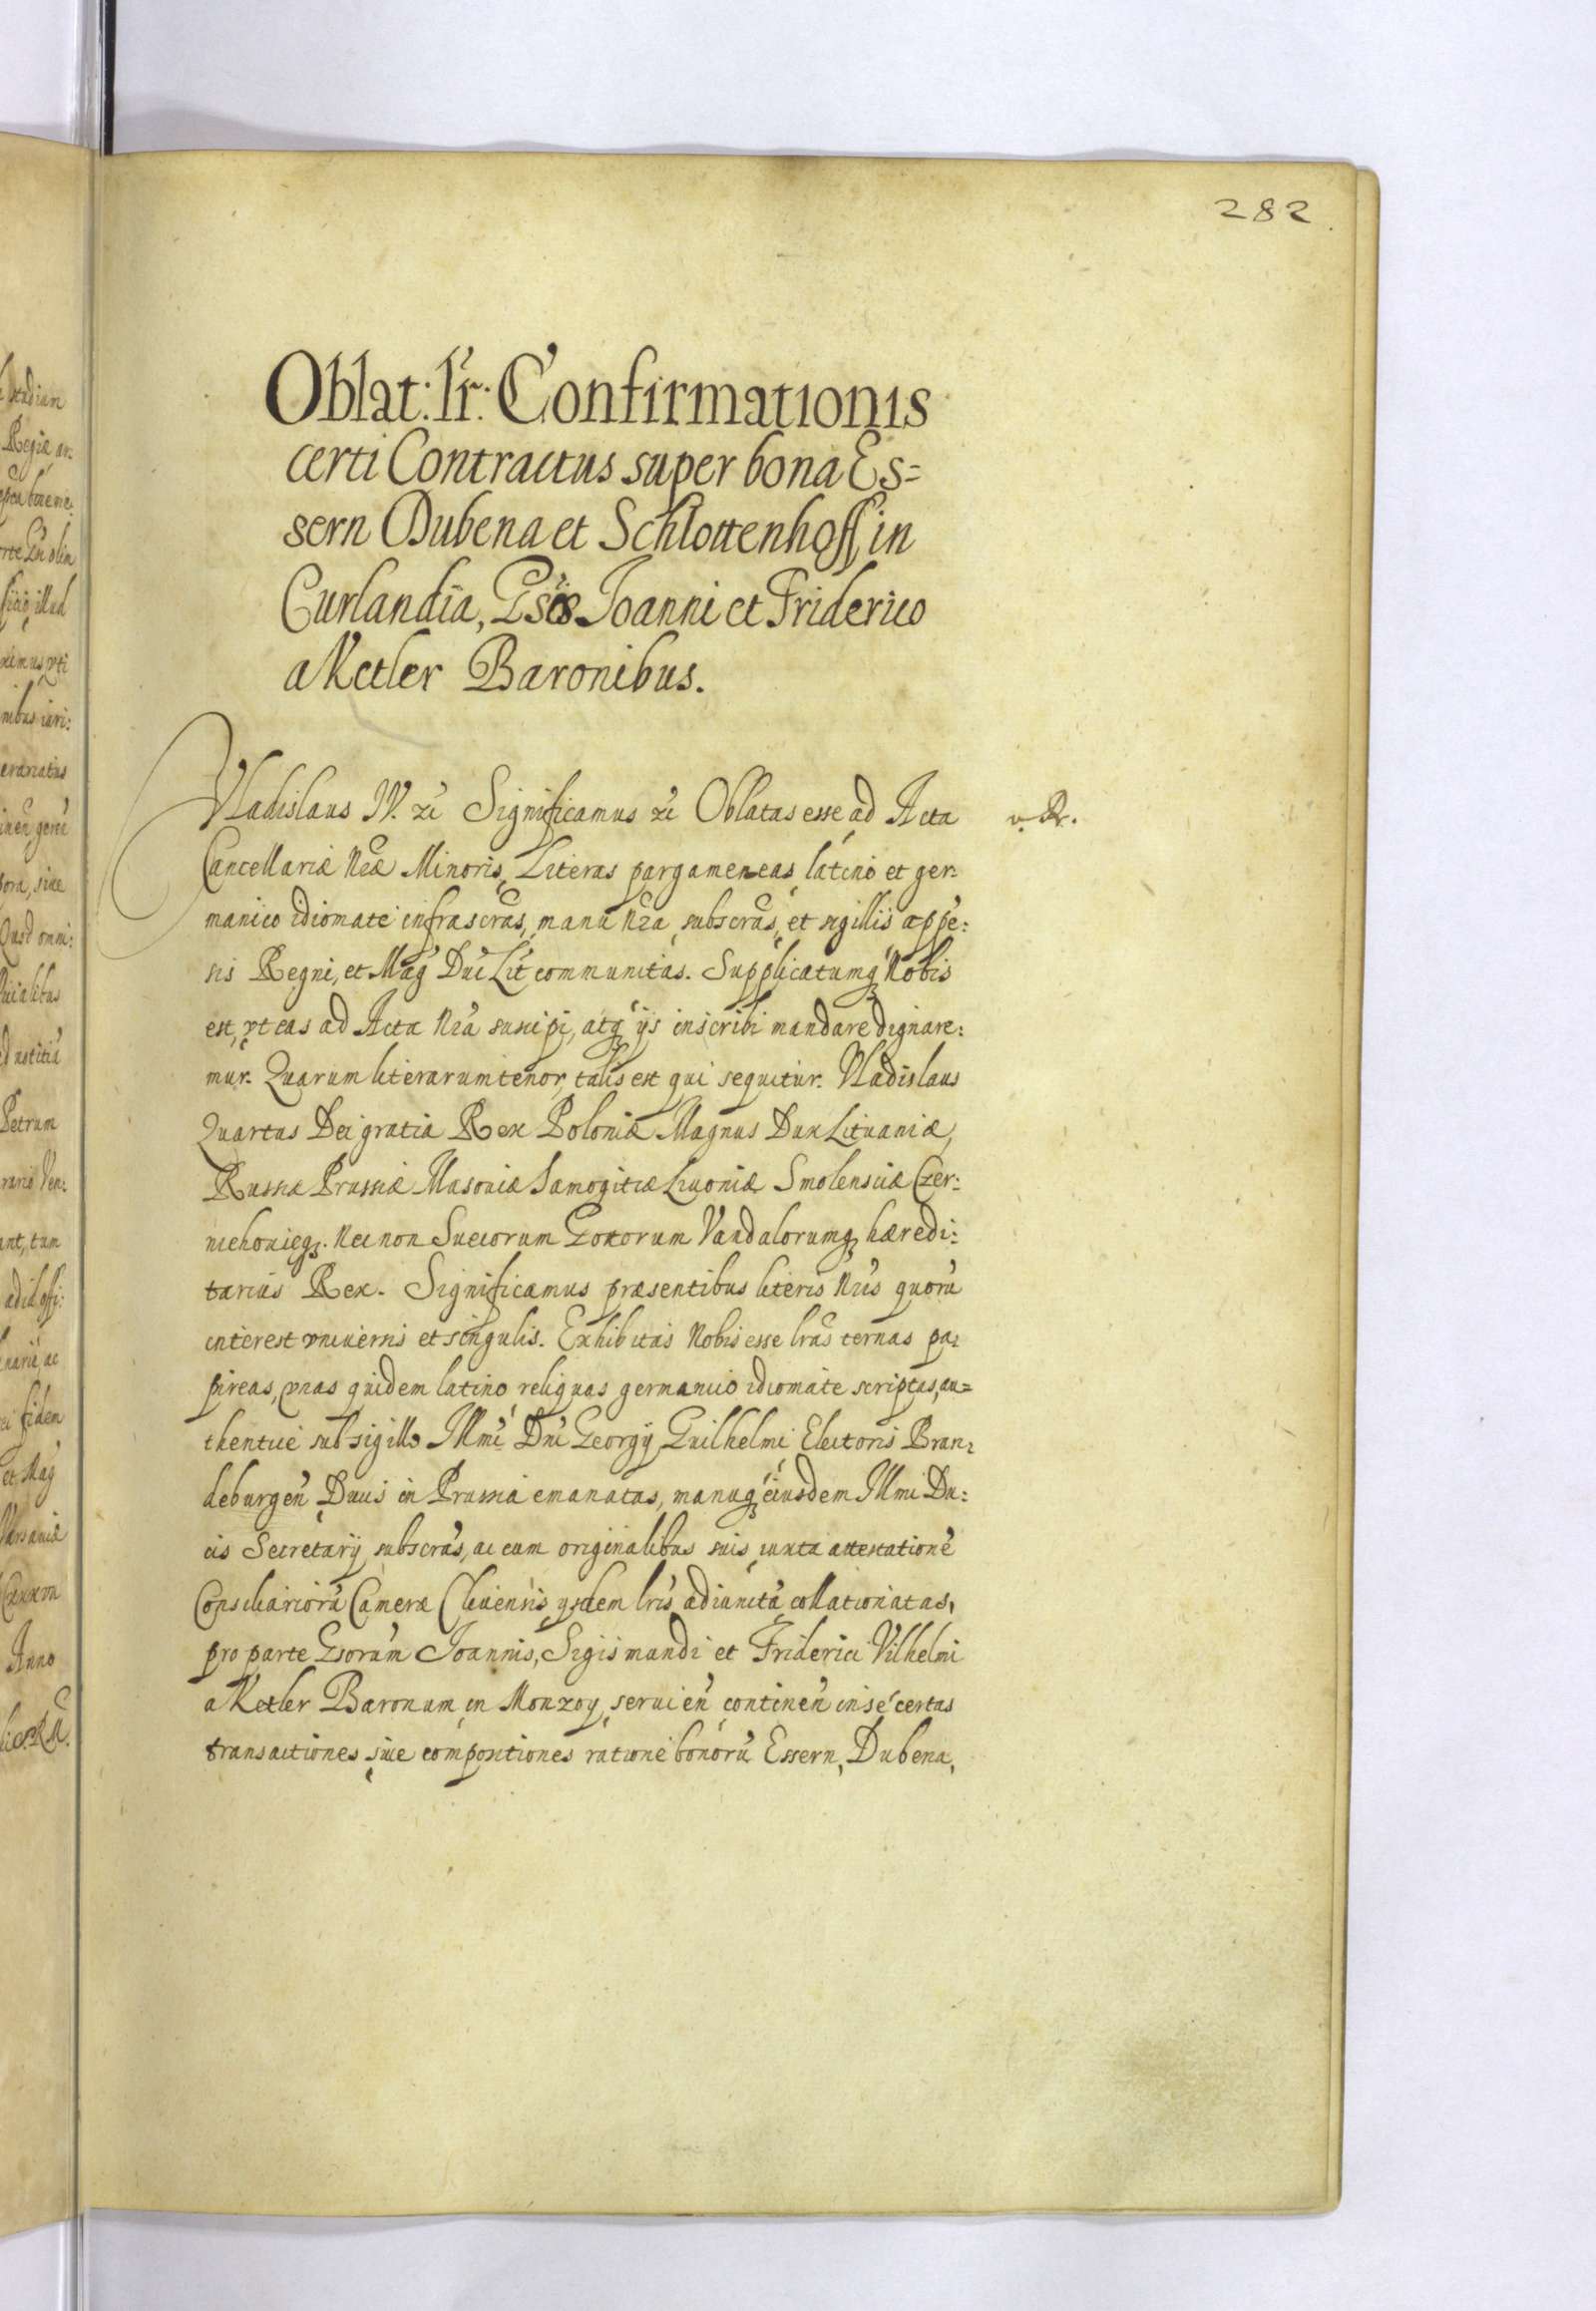 282
Oblat: lr̃: Confirmationis
certi Contractus super bona Es=
sern Dubena et Schlottenhoff, in
Curlandia, Gsis Joanni et Friderico
a Ketler Baronibus.
Vladislaus IV. &c Significamus &c Oblatas esse ad Acta
Cancellariæ Nræ Minoris, Literas pargameneas latino et ger-
manico idiomate infrascras, manu nra subscras, et sigillis appe:
sis Regni, et Mag Duc Lit communitas. Supplicatumq Nobis
est, vt eas ad Acta Nra suscipi, atq ijs inscribi mandare dignare:
mur. Quarum literarum tenor, talis est qui sequitur. Vladislaus
Quartus Dei gratia Rex Poloniæ Magnus Dux Lituaniæ,
Russiæ Prussiæ Masouiæ Samogitiæ Liuoniæ Smolensciæ Czer:
niehouieq. Nec non Suecorum Gotorum Vandalorumq hæredi:
tarius Rex. Significamus præsentibus literis Nris quorũ
interest vniuersis et singulis. Exhibitas Nobis esse lras ternas pa:
pireas, vnas quidem latino, reliquas germanico idiomate scriptas, au=
thentice sub sigillo Illmi Dni Georgij Guilhelmi Electoris Bran:
deburgeñ Ducis in Prussia emanatas, manuq eiusdem Illmi Du:
cis Secretarij subscras, ac cum originalibus suis iuxta attestationẽ
Consiliariorũ Cameræ Cliuensis ysdem lris adiunctã collationatas,
pro parte Gsorum Joannis, Sigismundi et Friderici Vilhelmi
a Ketler Baronum in Monzoy, seruieñ continẽn in se certas
transactiones siue compositiones ratione bonorũ Essern, Dubena,